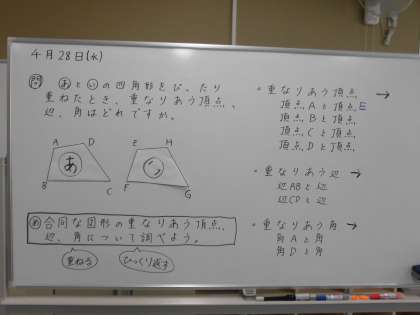 4月28日(水)
問 あといの四角形をぴったり
重ねたとき、重なりあう頂点、
辺、角はどれですか。
A D
あ
B C
E H
い
F G
め 合同な図形の重なりあう頂点、
辺、角について調べよう。
重ねる
ひっくり返す
・重なりあう頂点 →
頂点Aと頂点E
頂点Bと頂点
頂点Cと頂点
頂点Dと頂点
・重なりあう辺 →
辺ABと辺
辺CDと辺
・重なりあう角 →
角Aと角
角Dと角